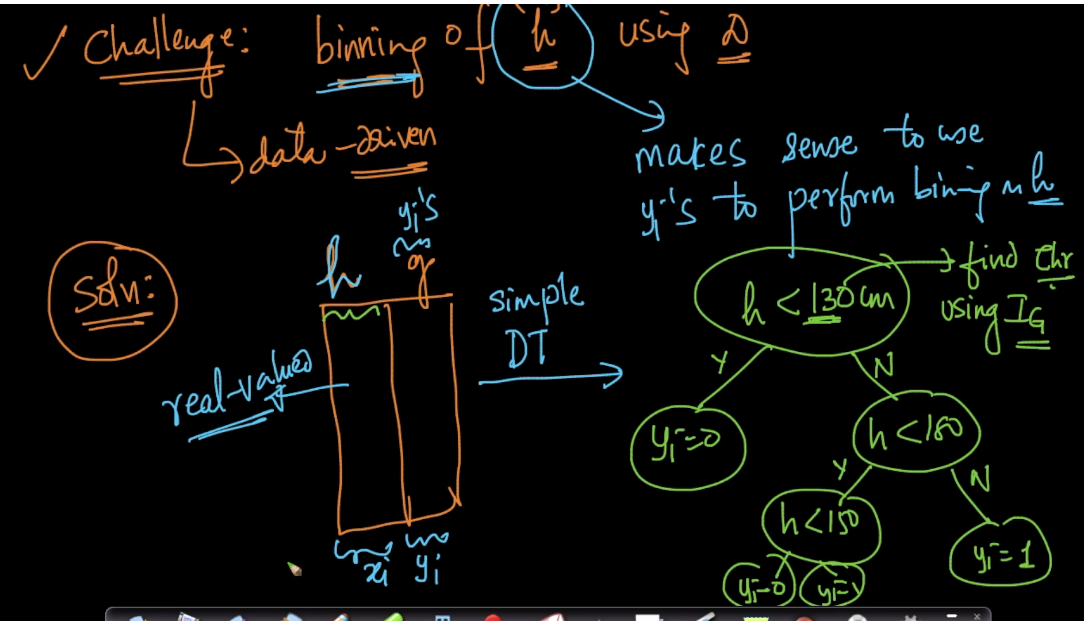 ✓ Challenge: binning of "h" using D
→ data-driven
makes sense to use
yi's to perform bining on h
yi's
h g
Soln:
real-values
xi yi
simple
DT
h < 130cm
→ find Thr
using IG
Y N
yi=0
h < 180
Y N
h < 150
yi=1
yi=0 yi=1